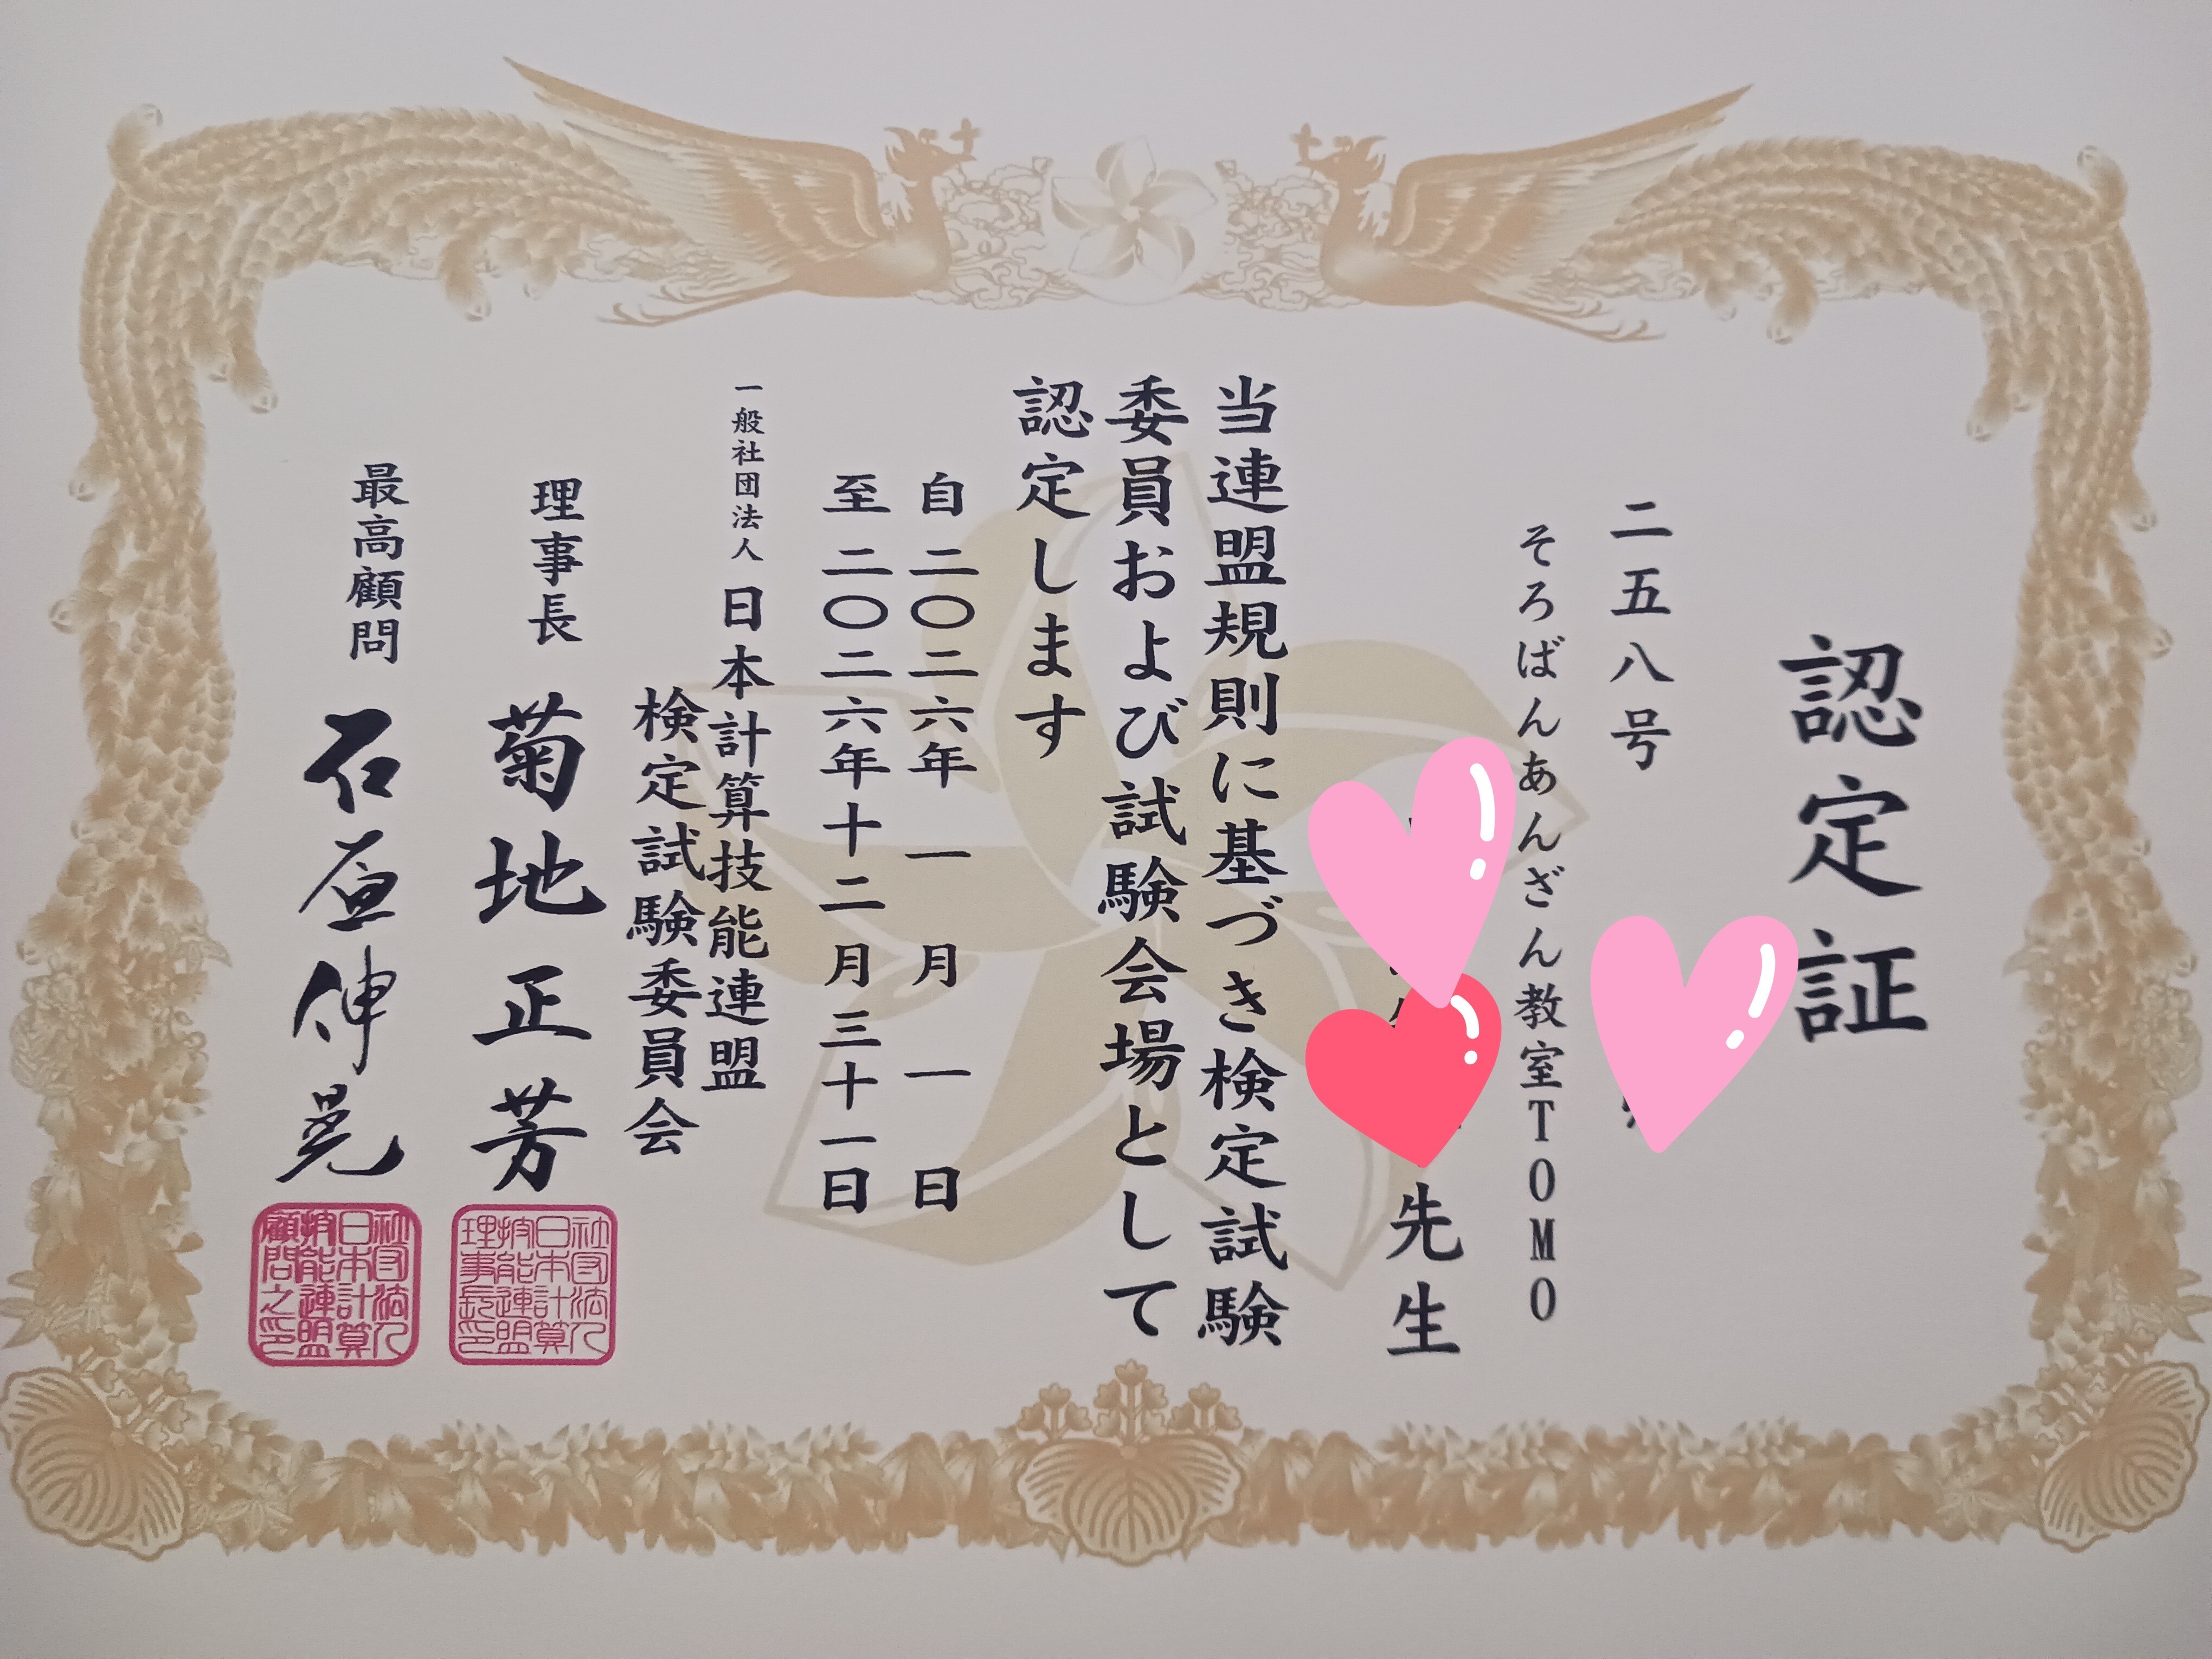 認定証
二五八号
そろばんあんざん教室TOMO
先生
当連盟規則に基づき検定試験
委員および試験会場として
認定します
自二〇二六年一月一日
至二〇二六年十二月三十一日
一般社団法人 日本計算技能連盟
検定試験委員会
理事長 菊地正芳
最高顧問 石原伸晃
社団法人日本計算技能連盟理事長印
社団法人日本計算技能連盟顧問之印